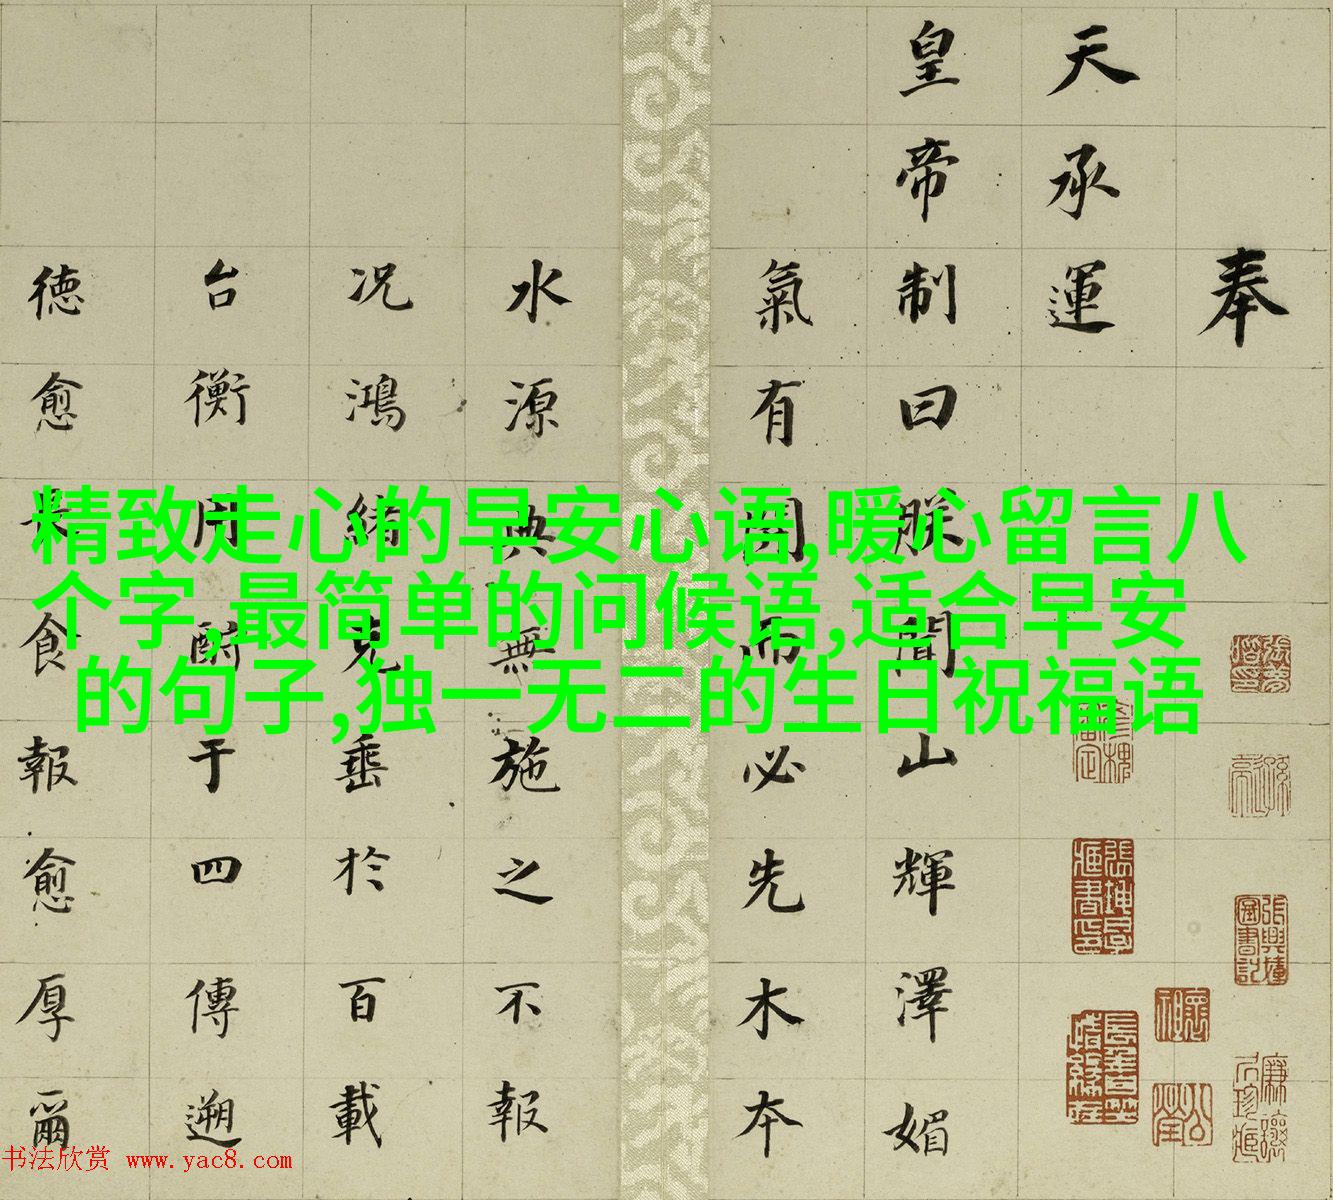 奉
天承運
皇帝制曰朕聞山輝澤媚
氣有開而必先木本
水源典無施之不報
况鴻緒克垂於百載
台衡用酬于四傳遡
德愈食報愈厚爾
精致走心的早安心语,暖心留言八
个字,最简单的问候语,适合早安
的句子,独一无二的生日祝福语
书法欣赏 www.yac8.com